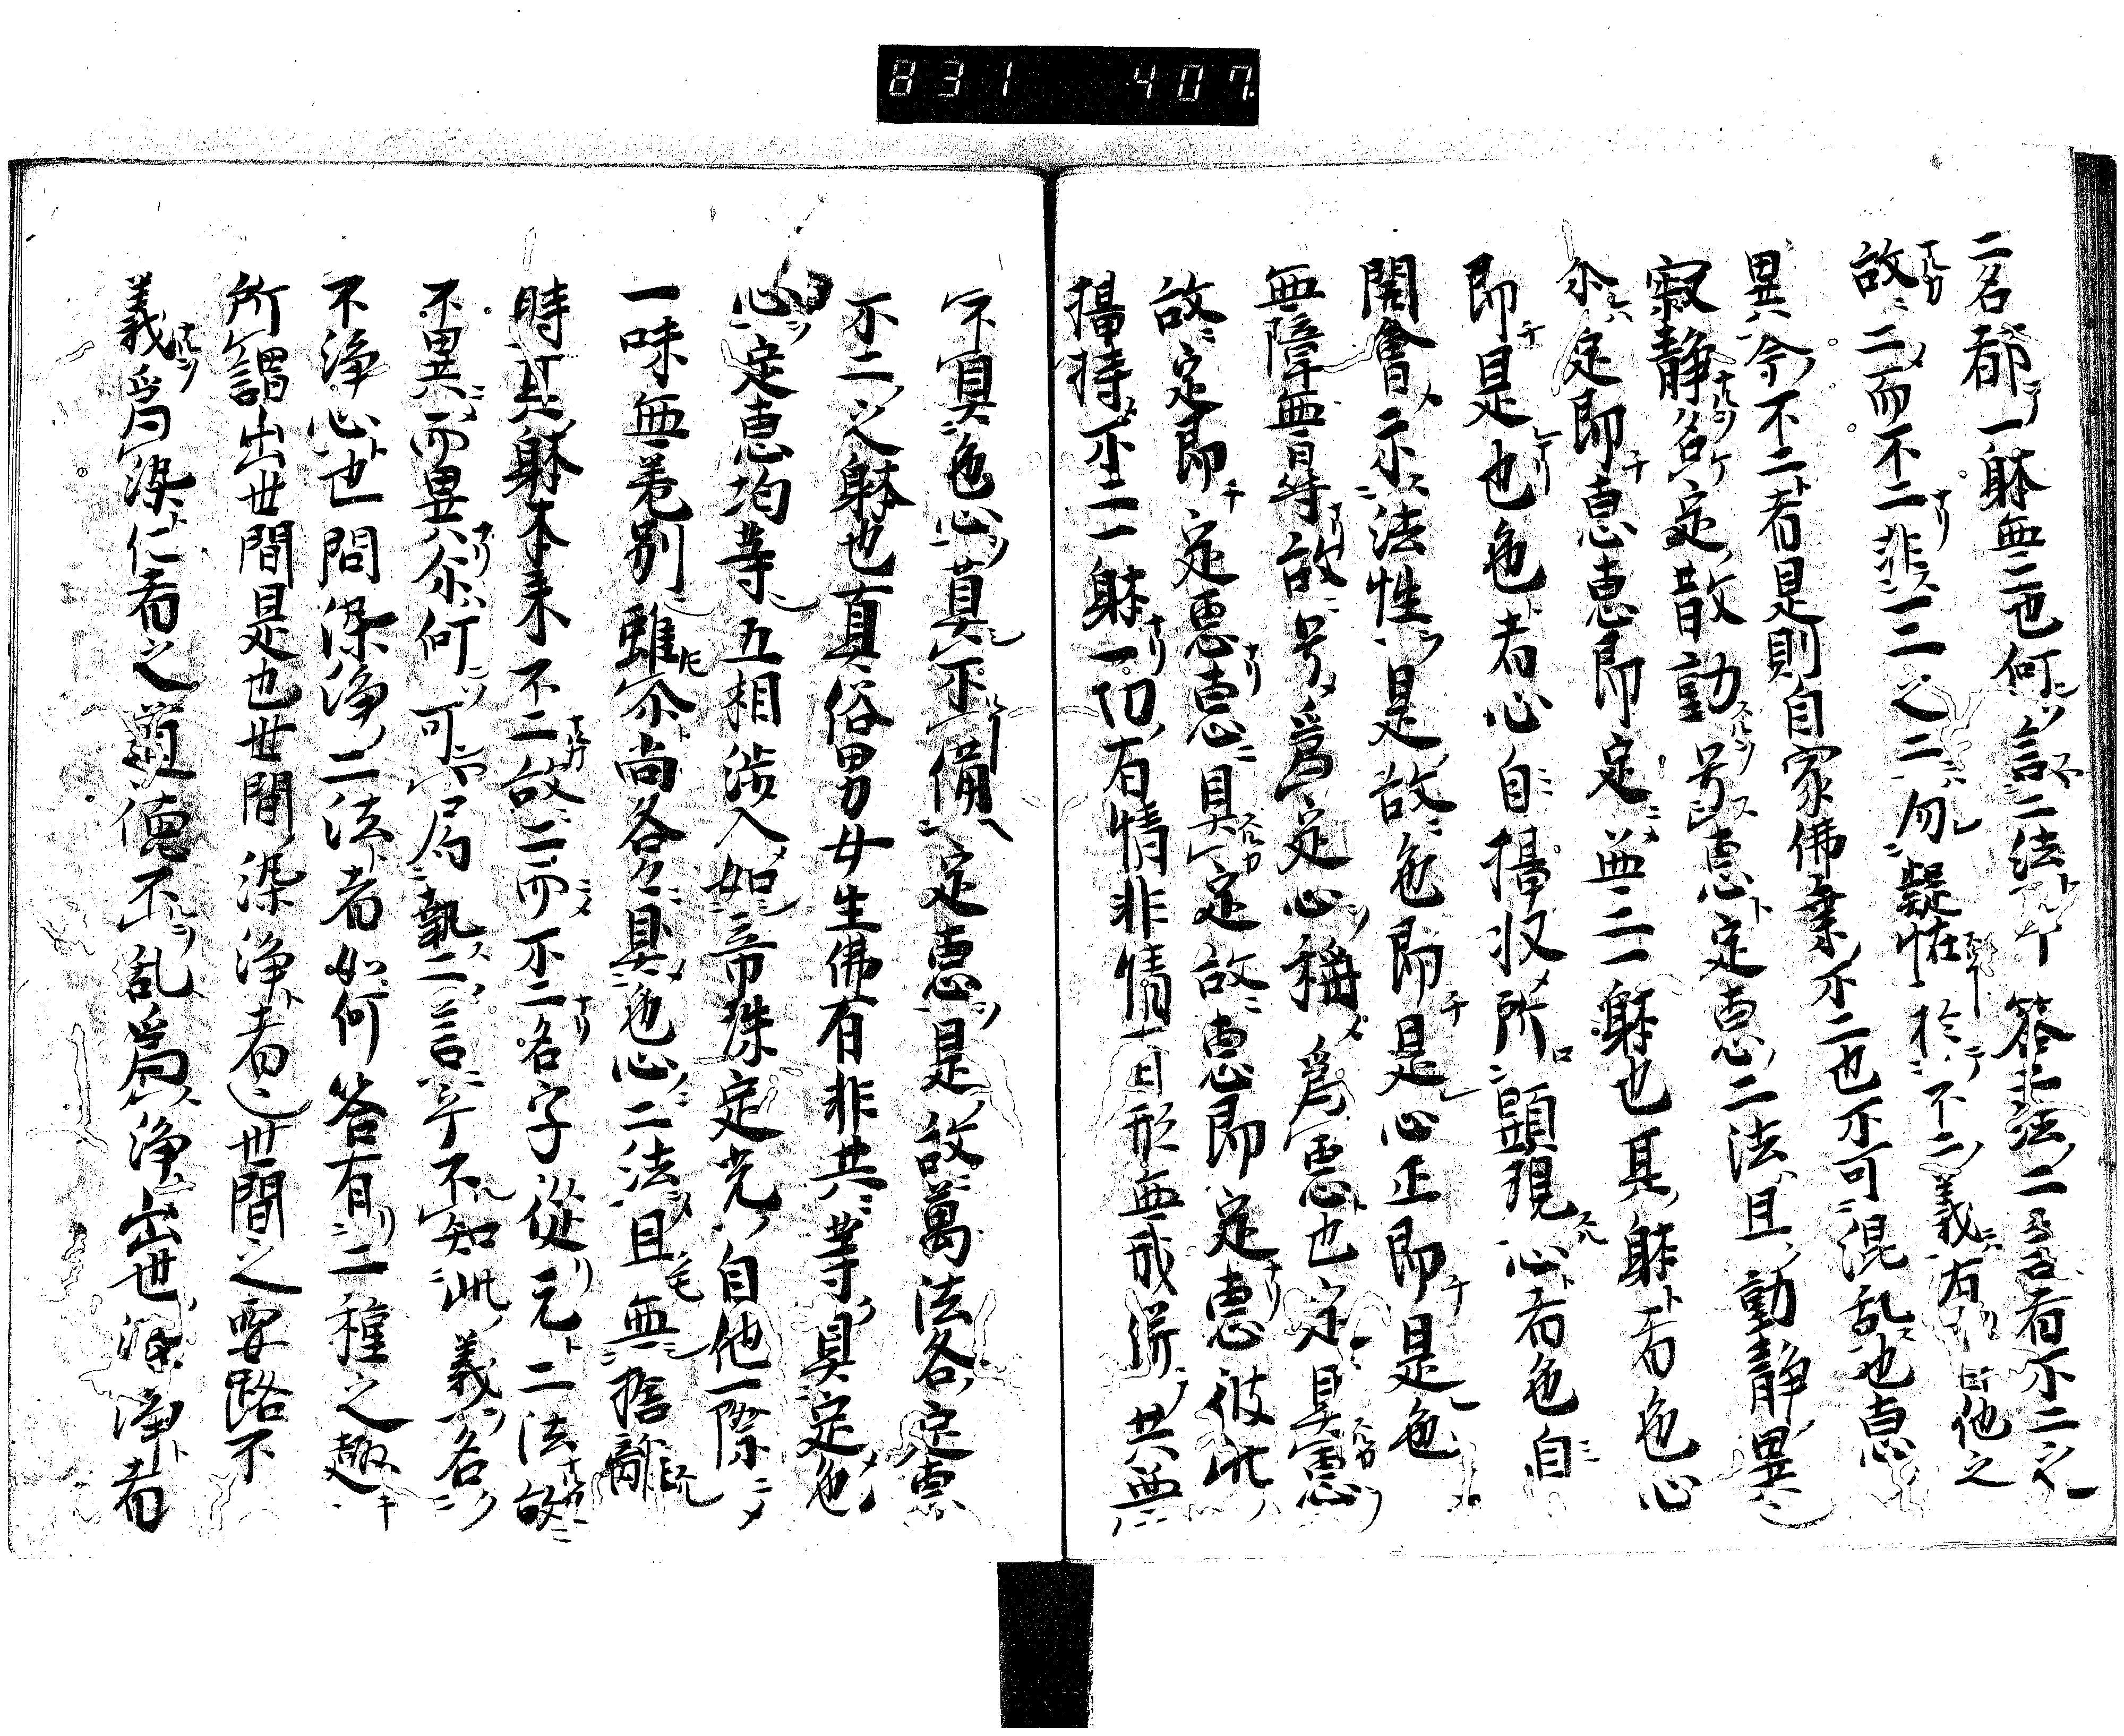 831 407
二名都一躰無二也何言二法乎答二法二言者不二之
故二而不二非一二之二勿疑恠於不二義有自他之
異今不二者是則自家佛乗不二也不可混乱也恵
寂静名定散動号恵定恵二法且動静異
尓定即恵恵即定無二一躰也其躰者色心
即是也色者心自摂収所顕現心者色自
開會示法性是故色即是心正即是色
無障無导故号為定心稱為恵也定具恵
故定即定恵恵具定故恵即定恵彼此
摂持不二一躰一切有情非情有形無形併共無
不具色心莫不備定恵是故萬法各定恵
不二之躰也真俗男女生佛有非共等具定色
心定恵均等互相渉入如帝珠定光自他一際
一味無差別雖尓尚各々具色心二法且無捨離
時其躰本来不二故二而不二名字從元二法故
不異而異尓何可局執二言乎不知此義名
不浄心也問染浄二法者如何答有二種之趣
所謂出世間是也世間染浄者世間之要路不
義為染仁者之道徳不乱為浄出世染浄者